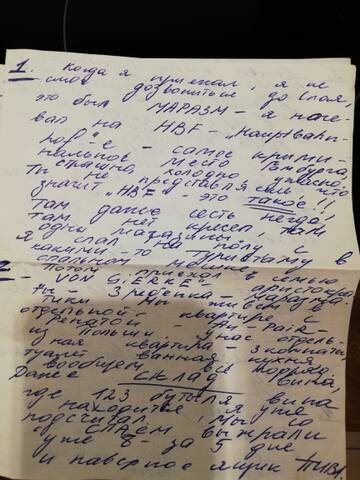 1. Когда я приехал, я не
смог дозвониться до Славы,
это был МАРАЗМ – я ноче-
вал на HBF – „Hauptbahn-
hof"-е – самое крими-
нальное место Гамбурга,
страшно, холодно, ужасно.
Ты не представляешь что
значит „HBF" – это такое!!
Там даже сесть негде,
там нет кресел, там
одни магазины.
Я спал на полу с
каким-то туристом в
спальном мешке.
2 – Потом приехал в семью
„VON GIERKE" – аристокра-
ты, 3 ребёнка – маразма-
тики. Мы живём в
отдельной квартире с
Ренатой – „Au-PAIR"
из Польши – у нас отдель-
ная квартира – 3 комнаты,
туалет, ванная, кухня
вообщем всё хоррошо.
Даже СКЛАД вина,
где 123 бутыля вина
находится, я уже
подсчитал, мы со
СПАЕМ выжрали
уже 8 за 5 дне
и наверное ящик ПИВА.